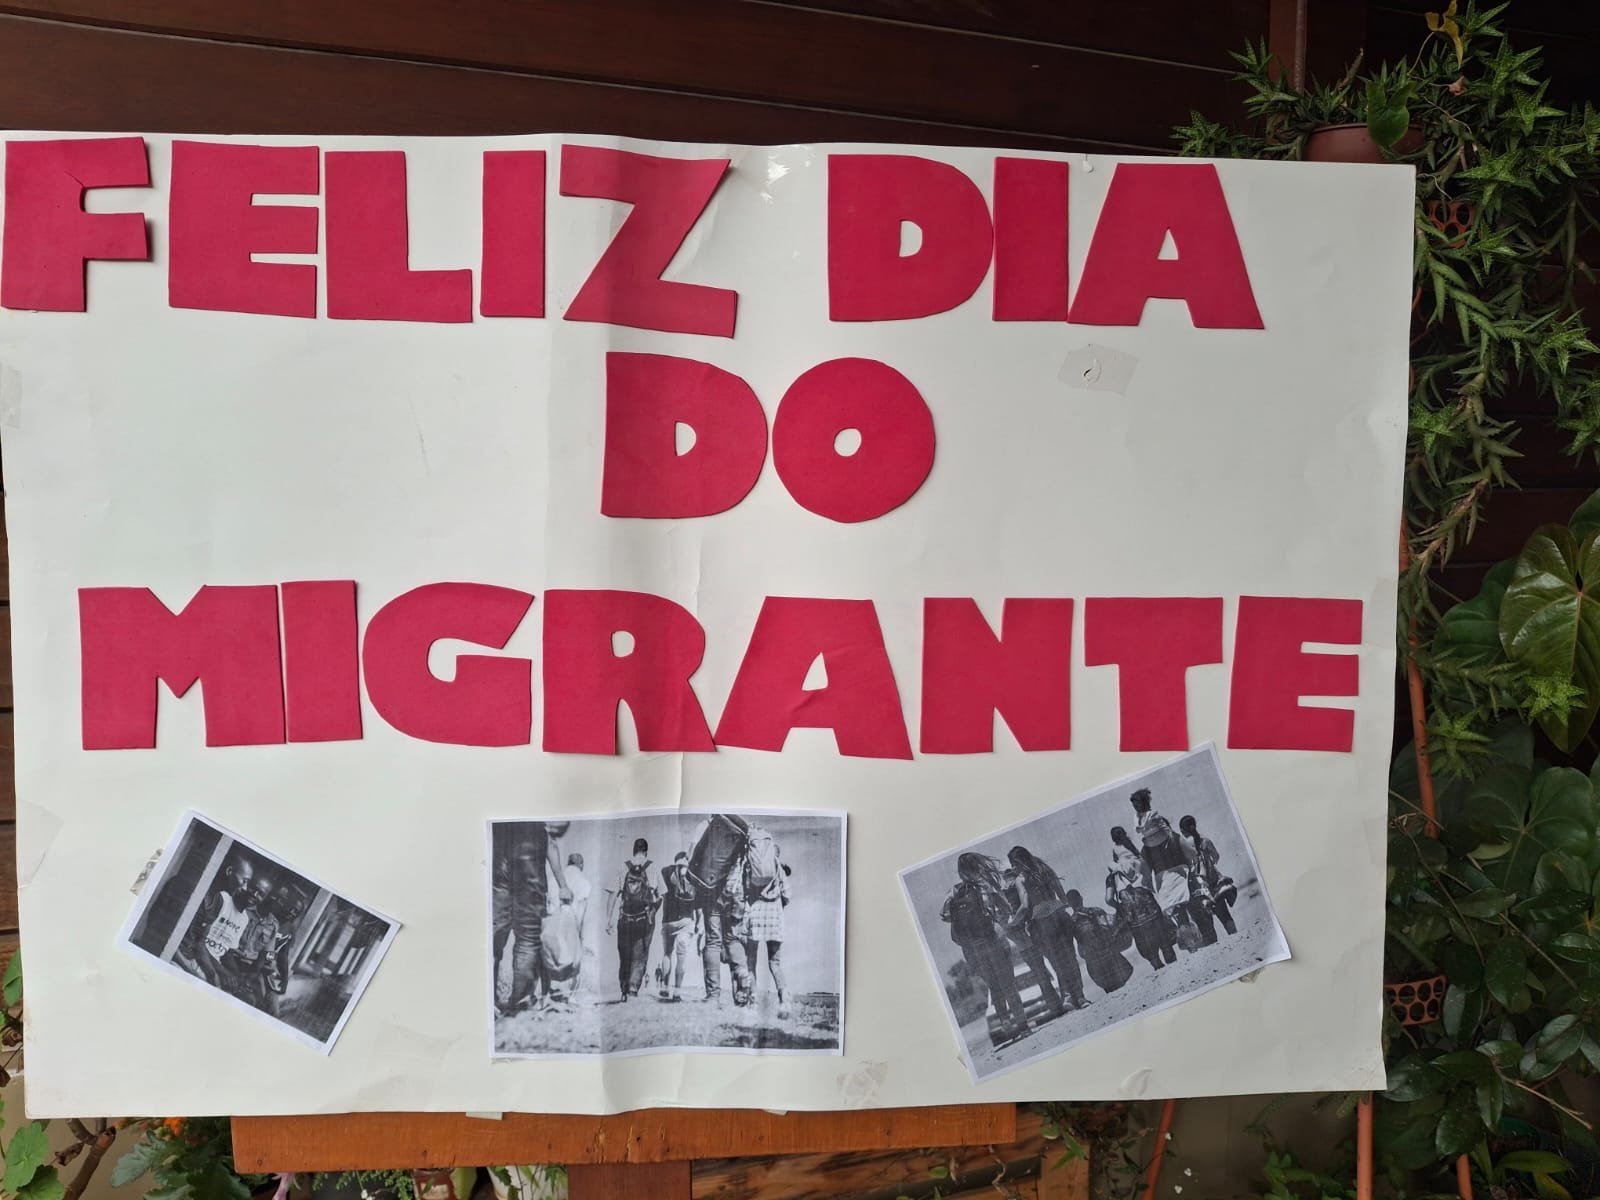 FELIZ DIA
DO
MIGRANTE